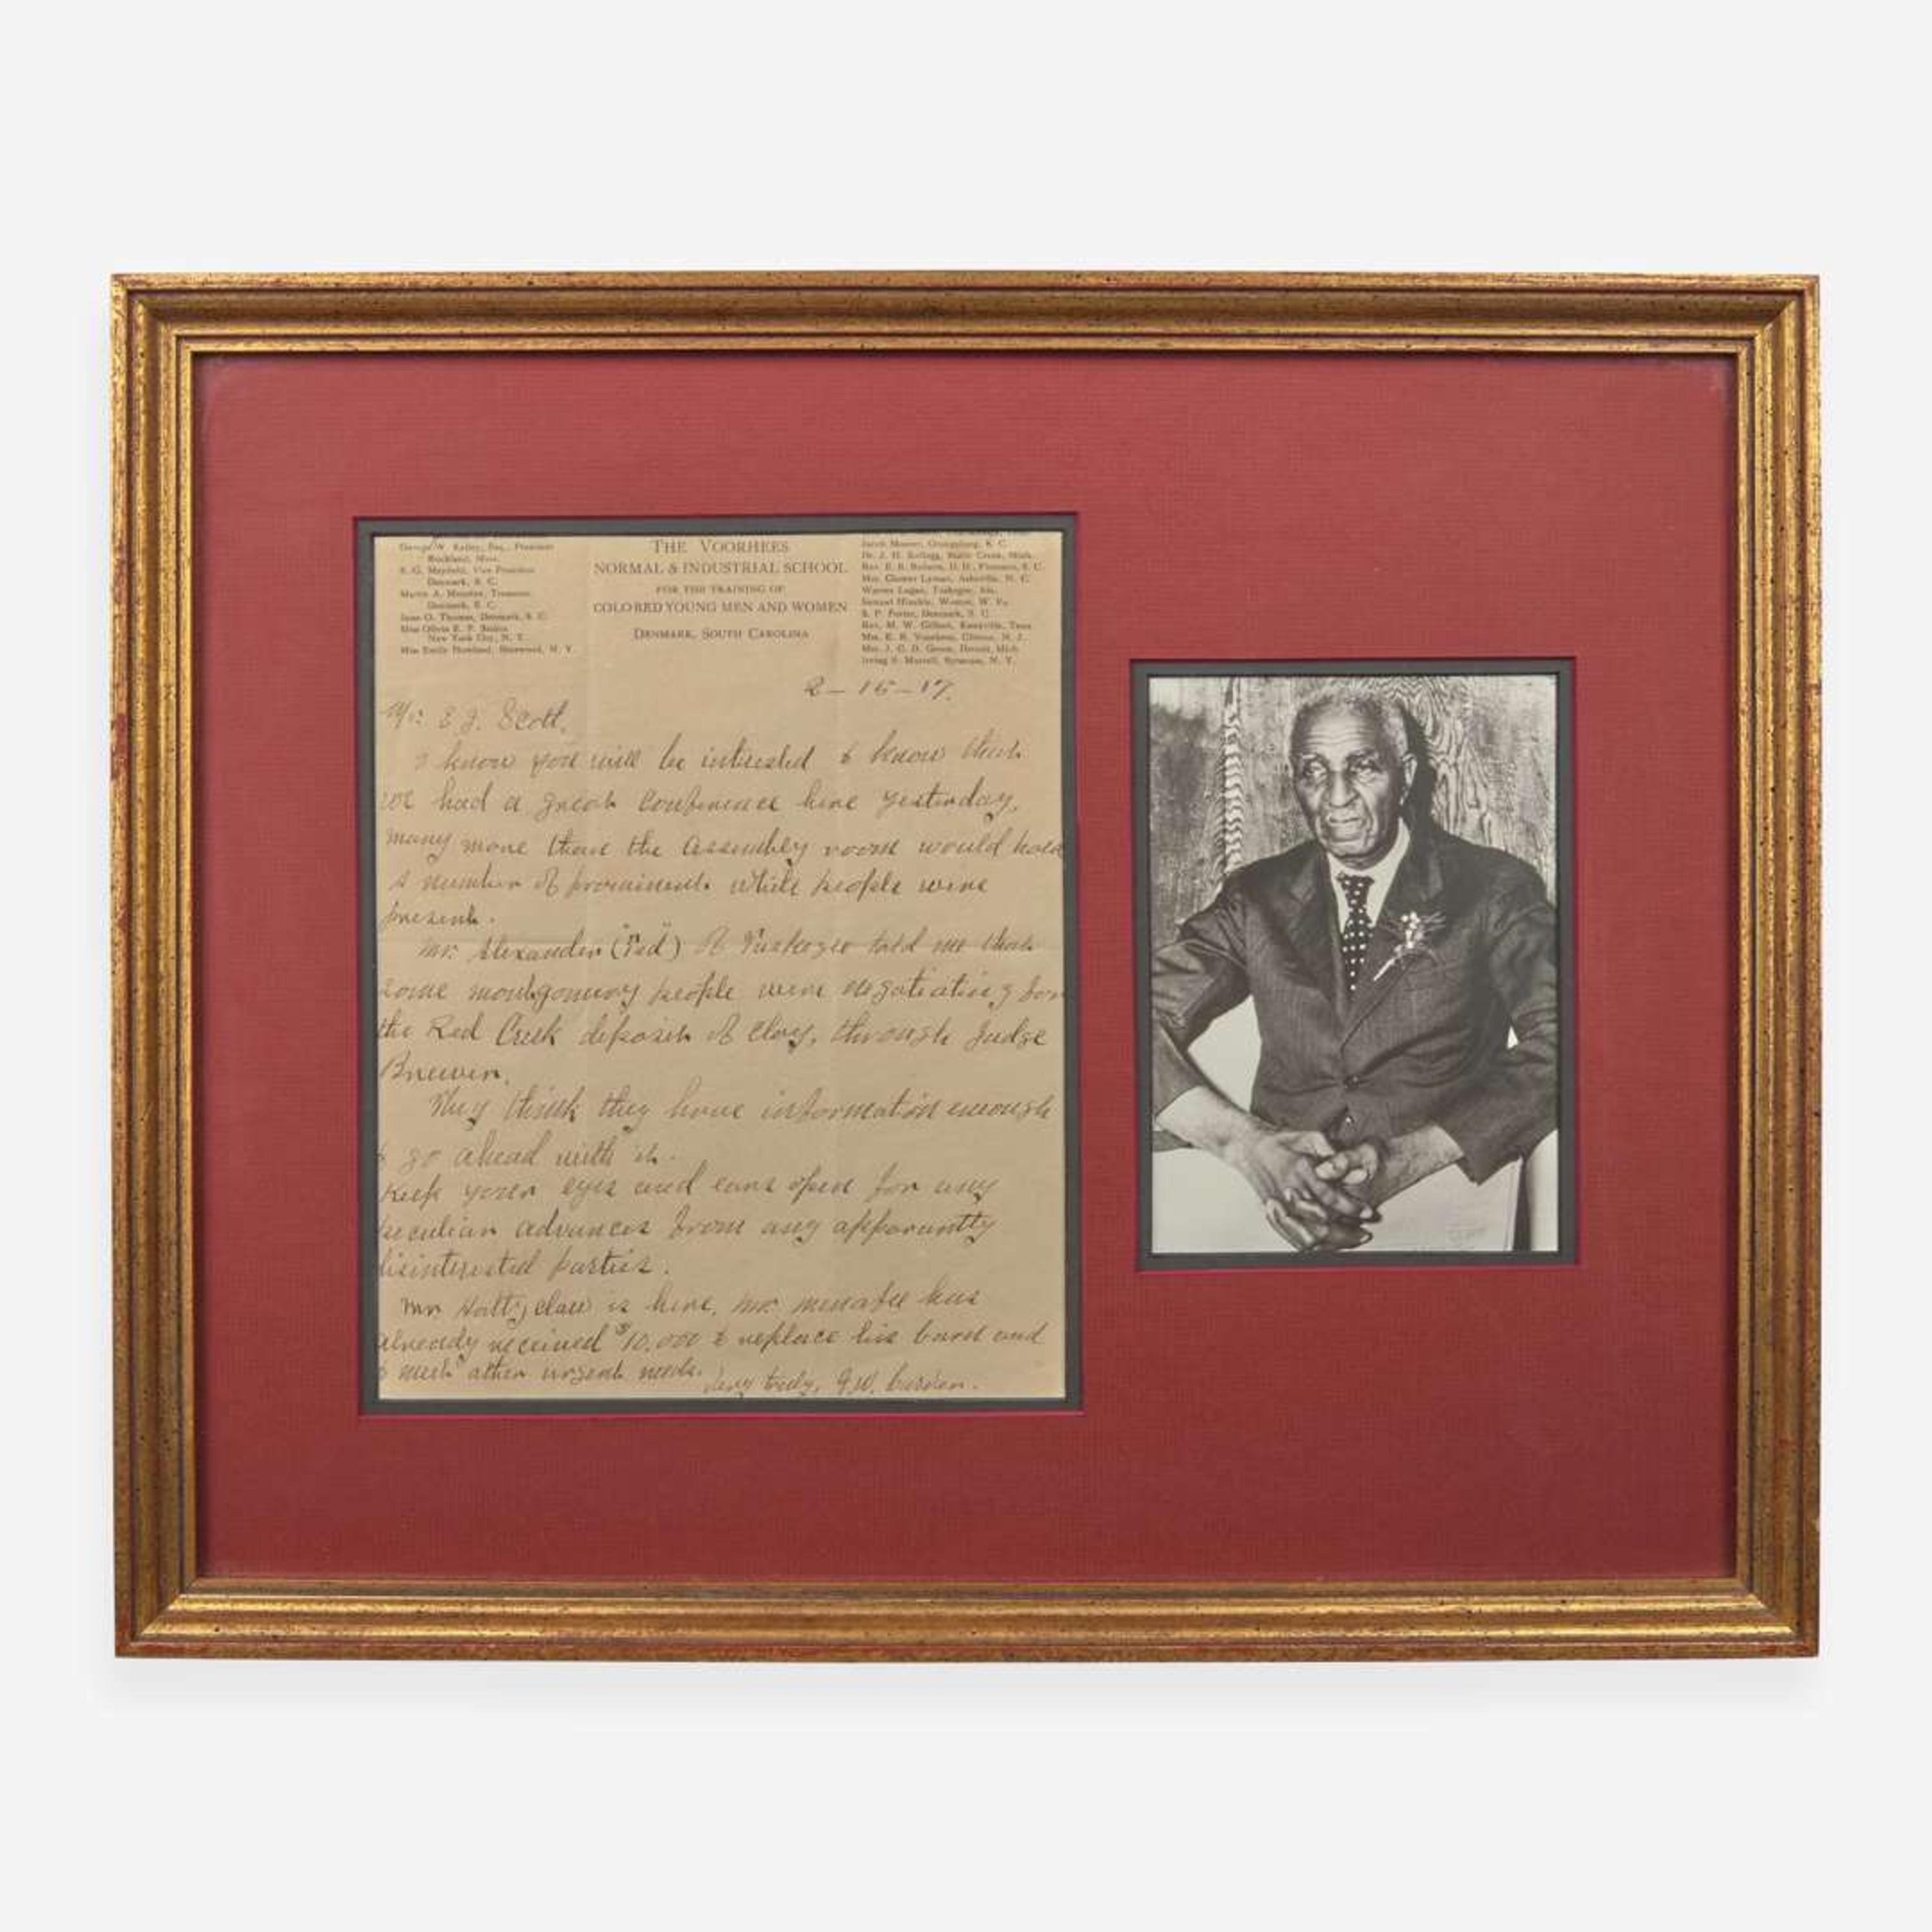 George W. Kelley, Esq., President
Rockland, Mass.
S. G. Mayfield, Vice President
Denmark, S. C.
Martin A. Menafee, Treasurer
Denmark, S. C.
Jesse O. Thomas, Denmark, S. C.
Miss Olivia E. P. Stokes
New York City, N. Y.
Miss Emily Howland, Sherwood, N. Y.
THE VOORHEES
NORMAL & INDUSTRIAL SCHOOL
FOR THE TRAINING OF
COLORED YOUNG MEN AND WOMEN
DENMARK, SOUTH CAROLINA
Jacob Moorer, Orangeburg, S. C.
Dr. J. H. Kellogg, Battle Creek, Mich.
Rev. E. R. Roberts, D. D., Florence, S. C.
Mrs. Lyman, Asheville, N. C.
Warren Logan, Tuskegee, Ala.
Samuel Weston, W. Va.
S. P. Porter, Denmark, S. C.
Rev. M. W. Gilbert, Knoxville, Tenn
Mrs. E. R. Voorhees, Clinton, N. J.
Mrs. J. C. D. Green, Detroit, Mich
Irving S. Merrell, Syracuse, N. Y.
2-15-17.
Mr. E J. Scott,
I know you will be interested to know that
we had a great conference here yesterday,
many more than the assembly room would hold
A number of prominent white people were
present.
Mr. Alexander ("Ted") of Tuskegee told me that
some montgomery people were negotiating for
the Red Creek deposit of clay, through Judge
Brewer.
They think they have information enough
to go ahead with it.
Keep your eyes and ears open for any
peculiar advances from any apparantly
disinterested parties.
Mr. is here, Mr. menafee has
already received $10,000 to replace his barn and
to meet other urgent needs.
Very truly, G.W. Carver.